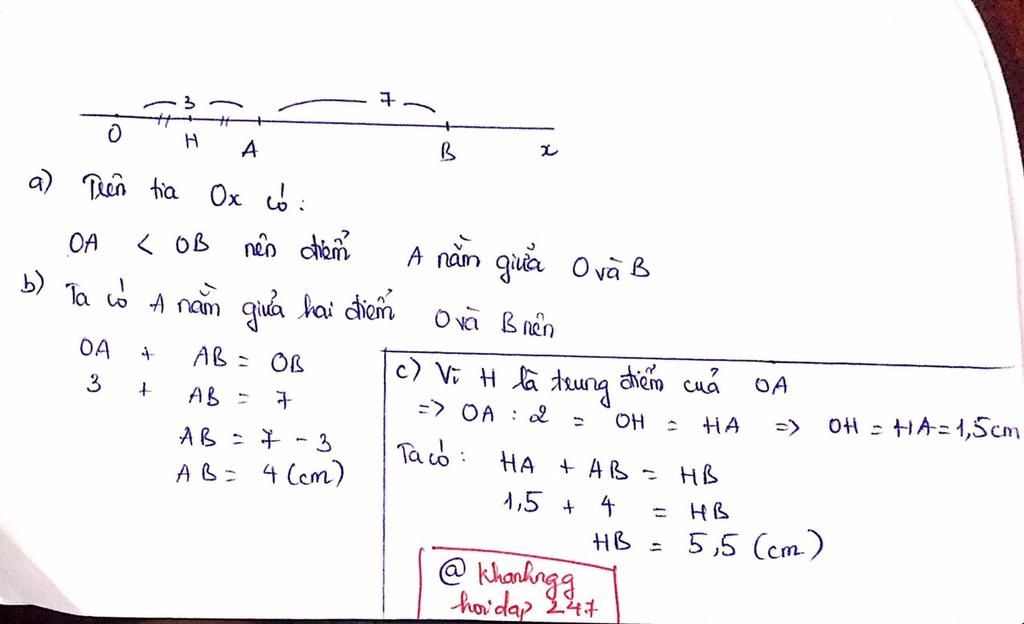 3 7
O H A B x
a) Trên tia Ox có:
OA < OB nên điểm A nằm giữa O và B
b) Ta có A nằm giữa hai điểm O và B nên
OA + AB = OB
3 + AB = 7
AB = 7 - 3
AB = 4 (cm)
c) Vì H là trung điểm của OA
=> OA : 2 = OH = HA => OH = HA = 1,5cm
Ta có: HA + AB = HB
1,5 + 4 = HB
HB = 5,5 (cm)
@ Khanhngg
hoidap 247